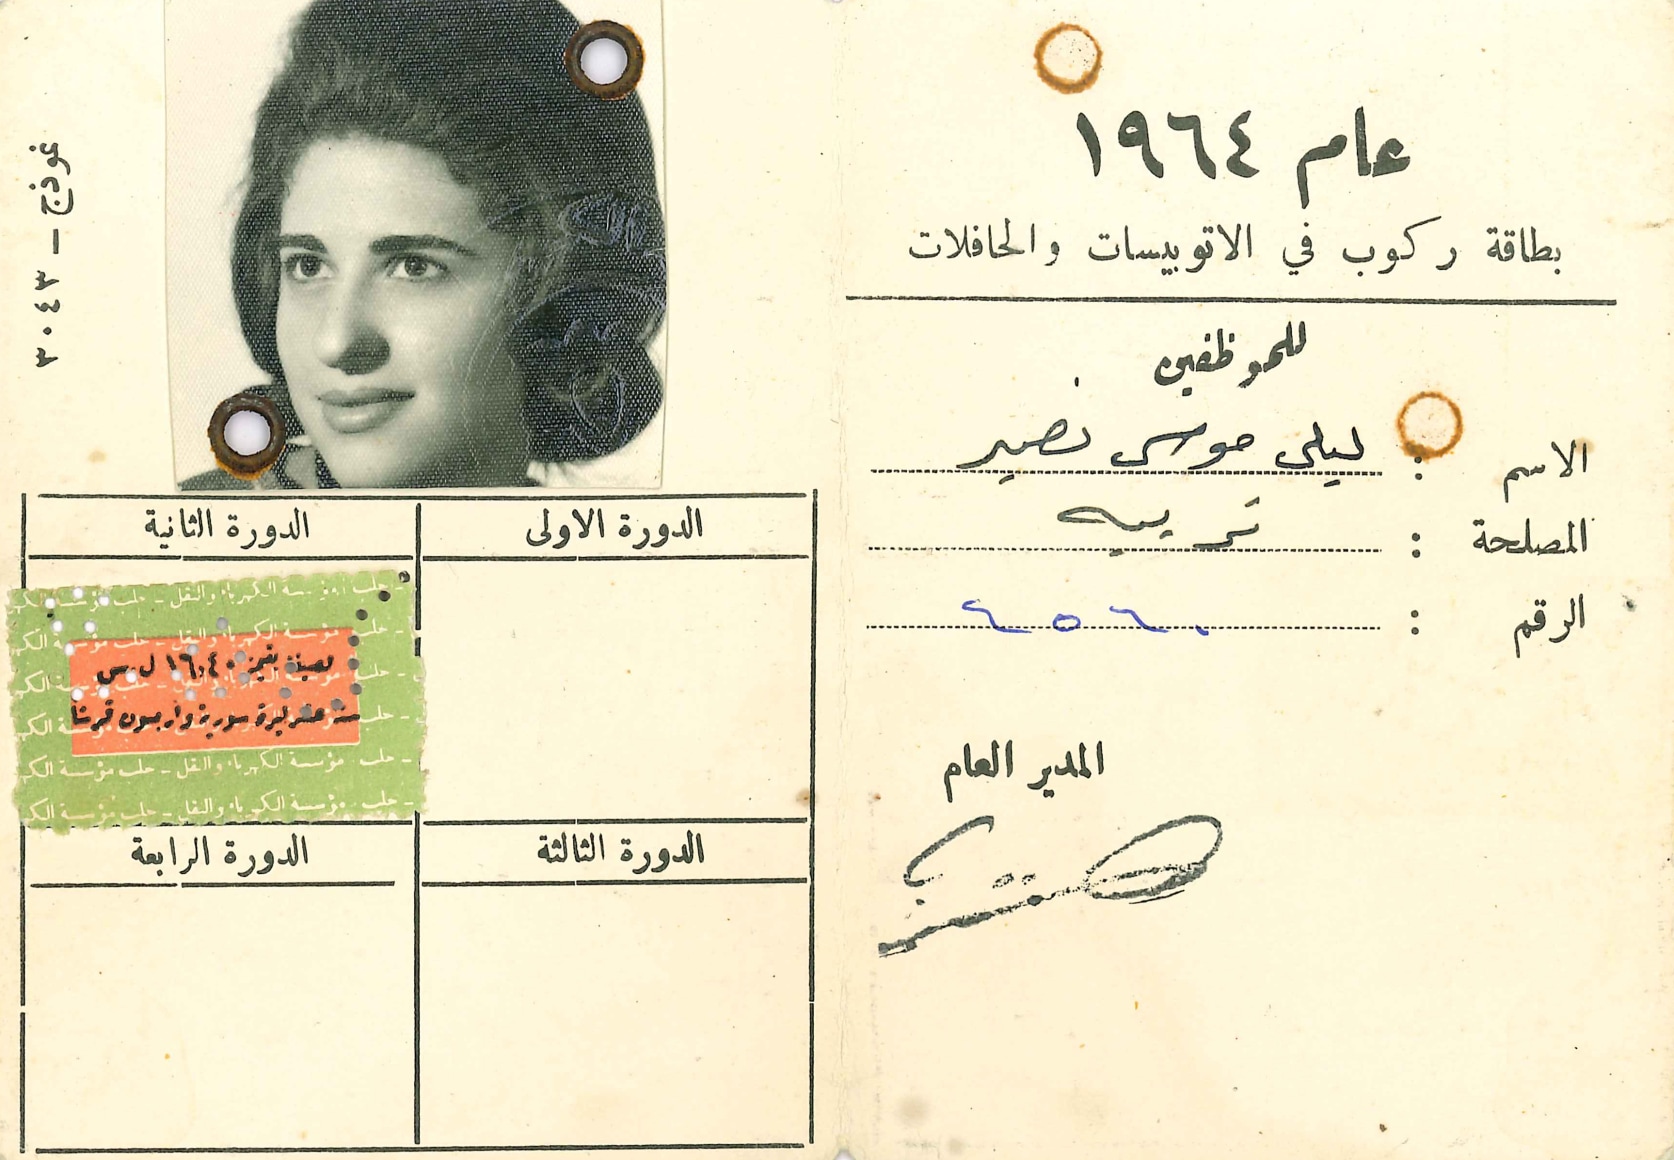 عام ١٩٦٤
بطاقة ركوب في الاتوبيسات والحافلات
للموظفين
الاسم : ليلى موسى نصير
المصلحة :
الرقم : ٤٥٦٠
المدير العام
نموذج – ٣٠٤٣
الدورة الاولى
الدورة الثانية
حلب مؤسسة الكهرباء والنقل – حلب مؤسسة الكهرباء
١٦،٤٠ ل.س
ستة عشر ليرة سورية واربعون قرشا
الدورة الثالثة
الدورة الرابعة